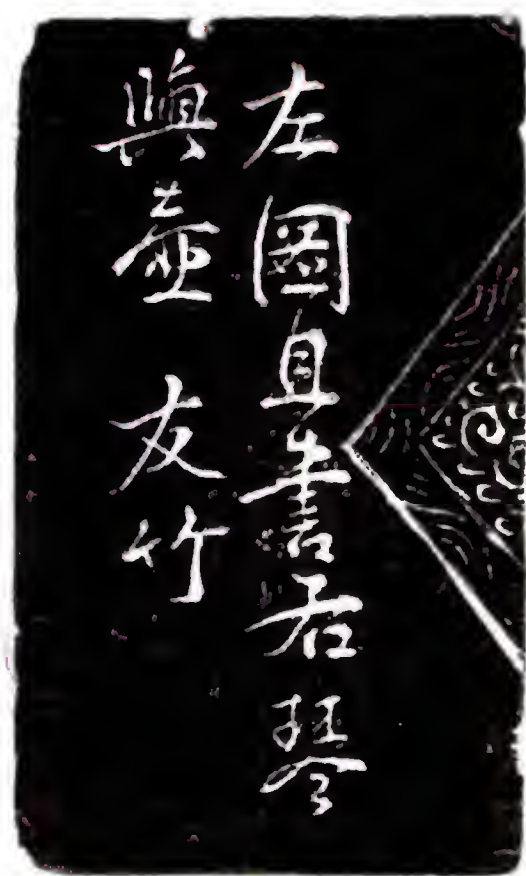 左圖且書右琴
與壺 友竹